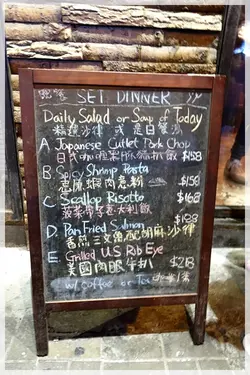 SET DINNER
Daily Salad or Soup of Today
精選沙律 或 是日餐湯
A. Japanese Cutlet Pork Chop
日式 飯 $158
B. Spicy Shrimp Pasta
蝦肉意粉 $158
C. Scallop Risotto $168
菠菜帶子意大利飯
D. Pan Fried Salmon $188
香煎三文魚配胡麻沙律
E. Grilled U.S Rib Eye
美國肉眼牛扒 $218
w/ coffee or Tea